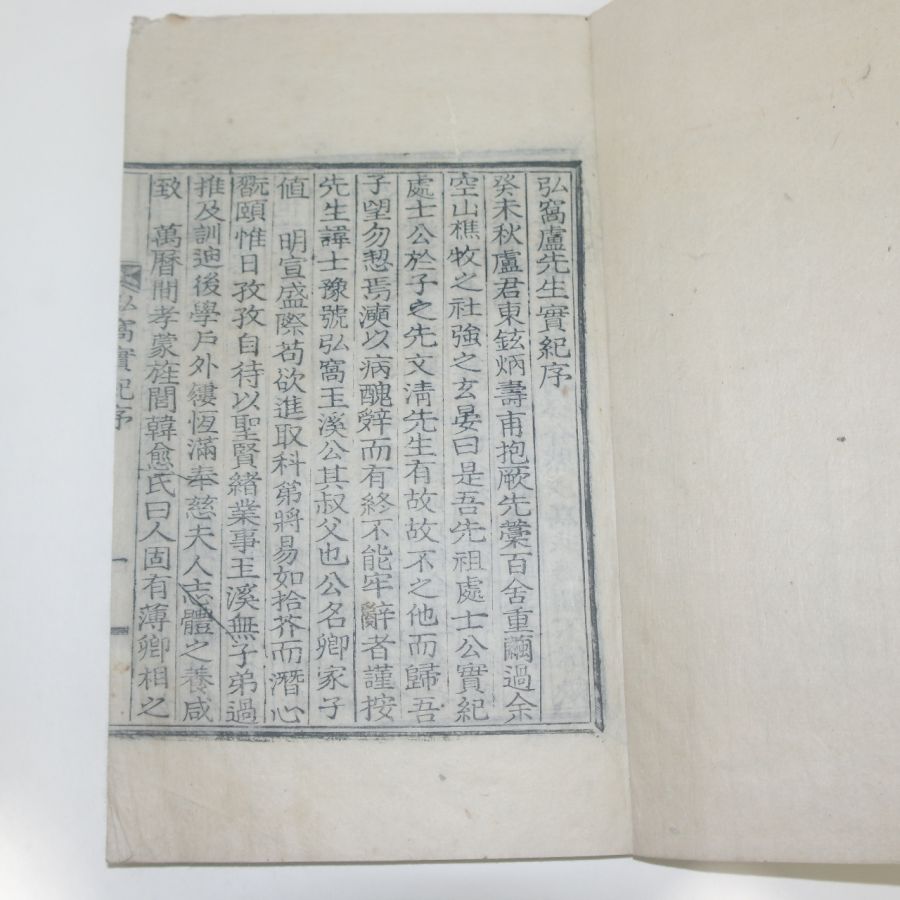 弘窩盧先生實紀序
癸未秋盧君東鉉炳壽甫抱厥先藁百舍重繭過余
空山樵牧之社強之玄晏曰是吾先祖處士公實紀
處士公於子之先文淸先生有故故不之他而歸吾
子望勿恝焉㵢以病醜辭而有終不能牢辭者謹按
先生諱士豫號弘窩玉溪公其叔父也公名卿家子
値 明宣盛際苟欲進取科第將易如拾芥而潛心
翫頤惟日孜孜自待以聖賢緖業事玉溪無子弟過
推及訓迪後學戶外縷恆滿奉慈夫人志體之養咸
致 萬曆間孝蒙旌閭韓愈氏曰人固有薄卿相之
弘窩實紀序
一